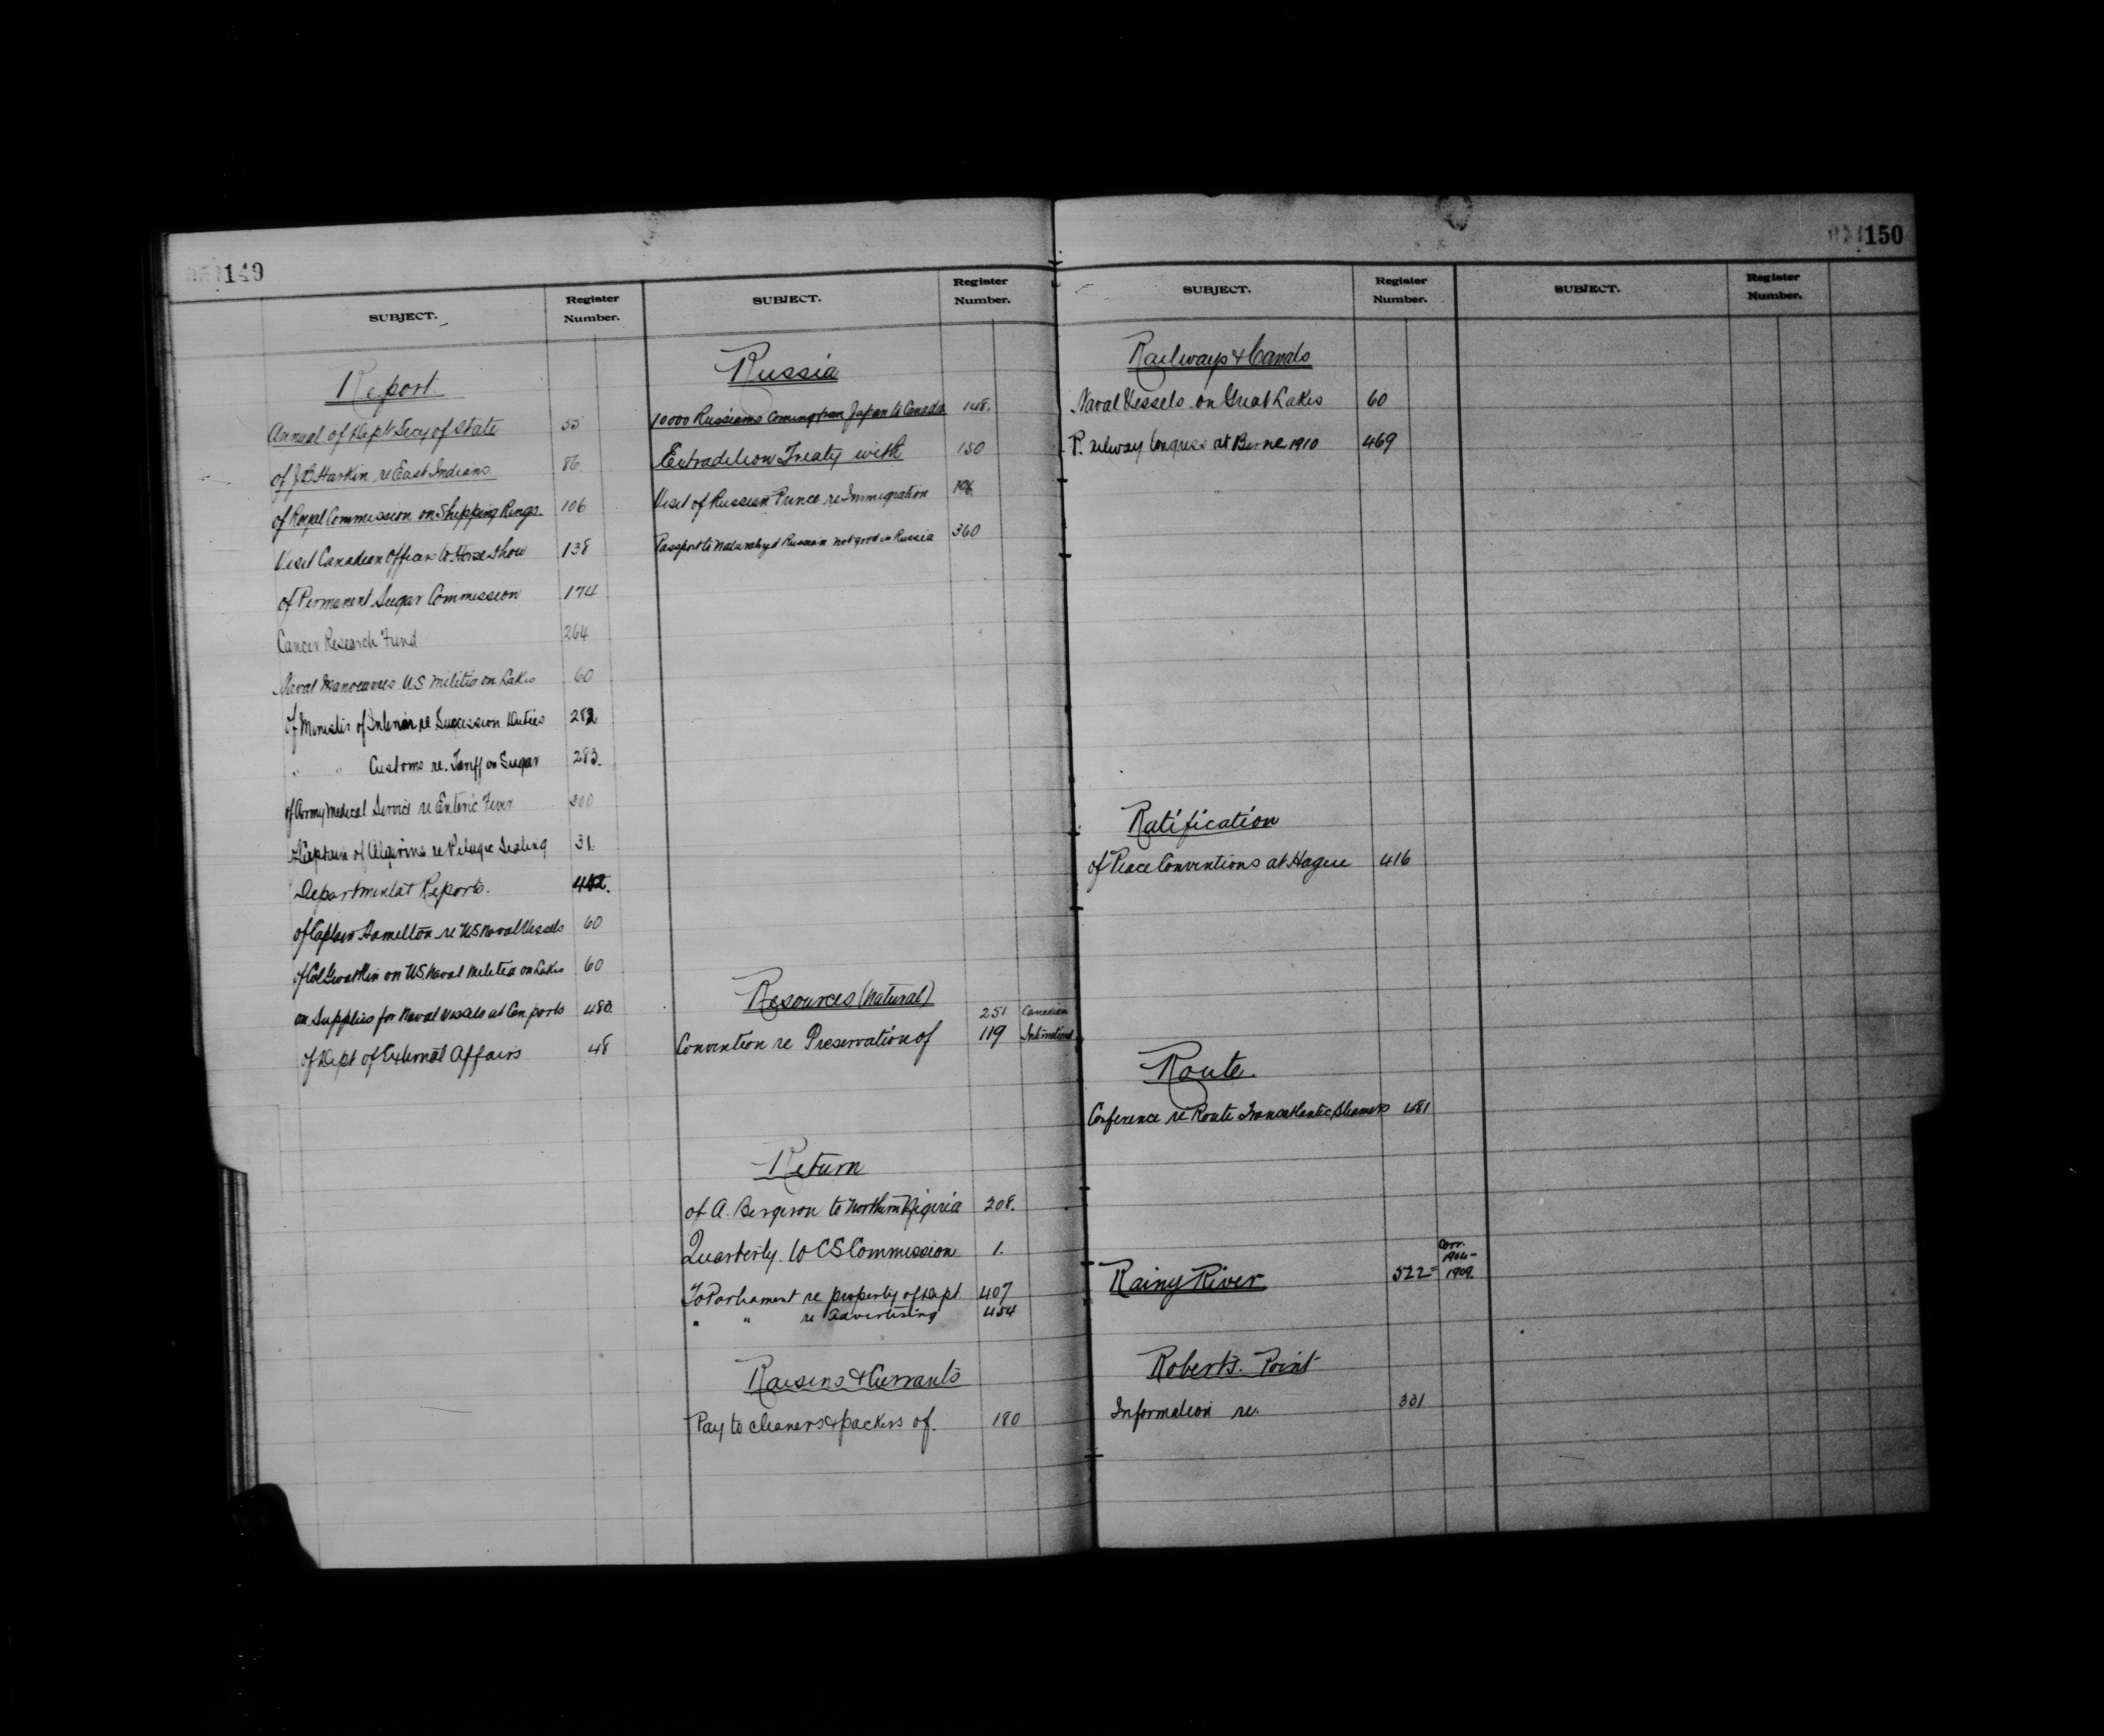 149
SUBJECT.
Register Number.
Report
Annual of Dept Secy of State 55
of J.D. Harkin re East Indians 86
of Royal Commission on Shipping Rings. 106
Visit Canadian Officers to Horse Show 138
of Permanent Sugar Commission 174
Cancer Research Fund 264
Naval Manoeuvres U.S. Militia on Lakes 60
of Minister of Interior re Succession Duties 282
" " Customs re. Tariff on Sugar 283.
of Army Medical Service re Enteric Fever 300
of Captain of Algerine re Pelagic Sealing 31.
Departmental Reports. 442.
of Captain Hamilton re U.S. Naval Vessels 60
of Col on U.S. Naval Militia on Lakes 60
on Supplies for Naval Vessels at Can ports 480
of Dept of External Affairs 48
SUBJECT.
Register Number.
Russia
10000 Russians coming from Japan to Canada 148.
Extradition Treaty with 150
Visit of Russian Prince re Immigration 196
Passport to Naturalized Russian not good in Russia 360
Resources (Natural)
251 Canadian
Convention re Preservation of 119 International
Return
of A. Bergeron to Northern Nigeria 208.
Quarterly. to C S Commission 1.
To Parliament re property of Dept 407
" " re Advertising 454
Raisins & Currants
Pay to cleaners & packers of. 180
150
SUBJECT.
Register Number.
Railways & Canals
Naval Vessels on Great Lakes 60
Railway Congress at Berne 1910 469
Ratification
of Peace Conventions at Hague 416
Route.
Conference re Route Transatlantic Steamers 481
Corr.
1906-
Rainy River 522= 1909.
Roberts. Point
Information re. 331
SUBJECT.
Register Number.